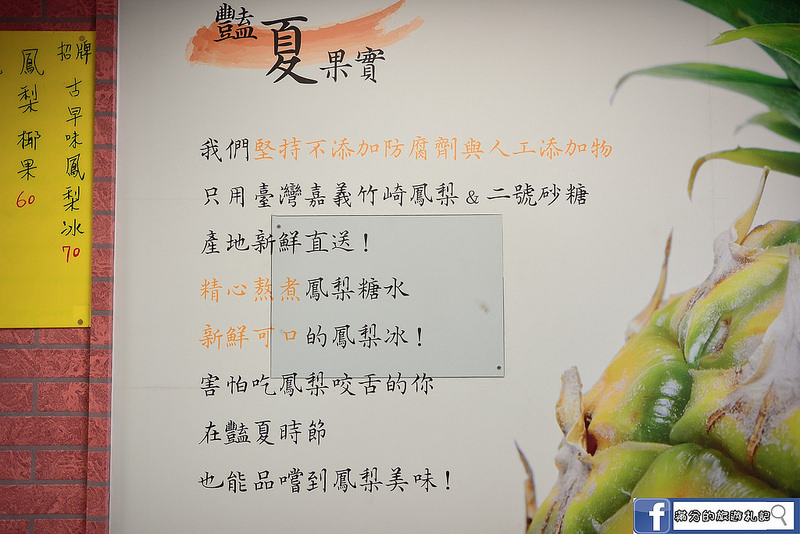 豔夏果實
我們堅持不添加防腐劑與人工添加物
只用臺灣嘉義竹崎鳳梨&二號砂糖
產地新鮮直送!
精心熬煮鳳梨糖水
新鮮可口的鳳梨冰!
害怕吃鳳梨咬舌的你
在豔夏時節
也能品嚐到鳳梨美味!
招牌 古早味鳳梨冰 70
鳳梨椰果 60
滿分的旅遊札記